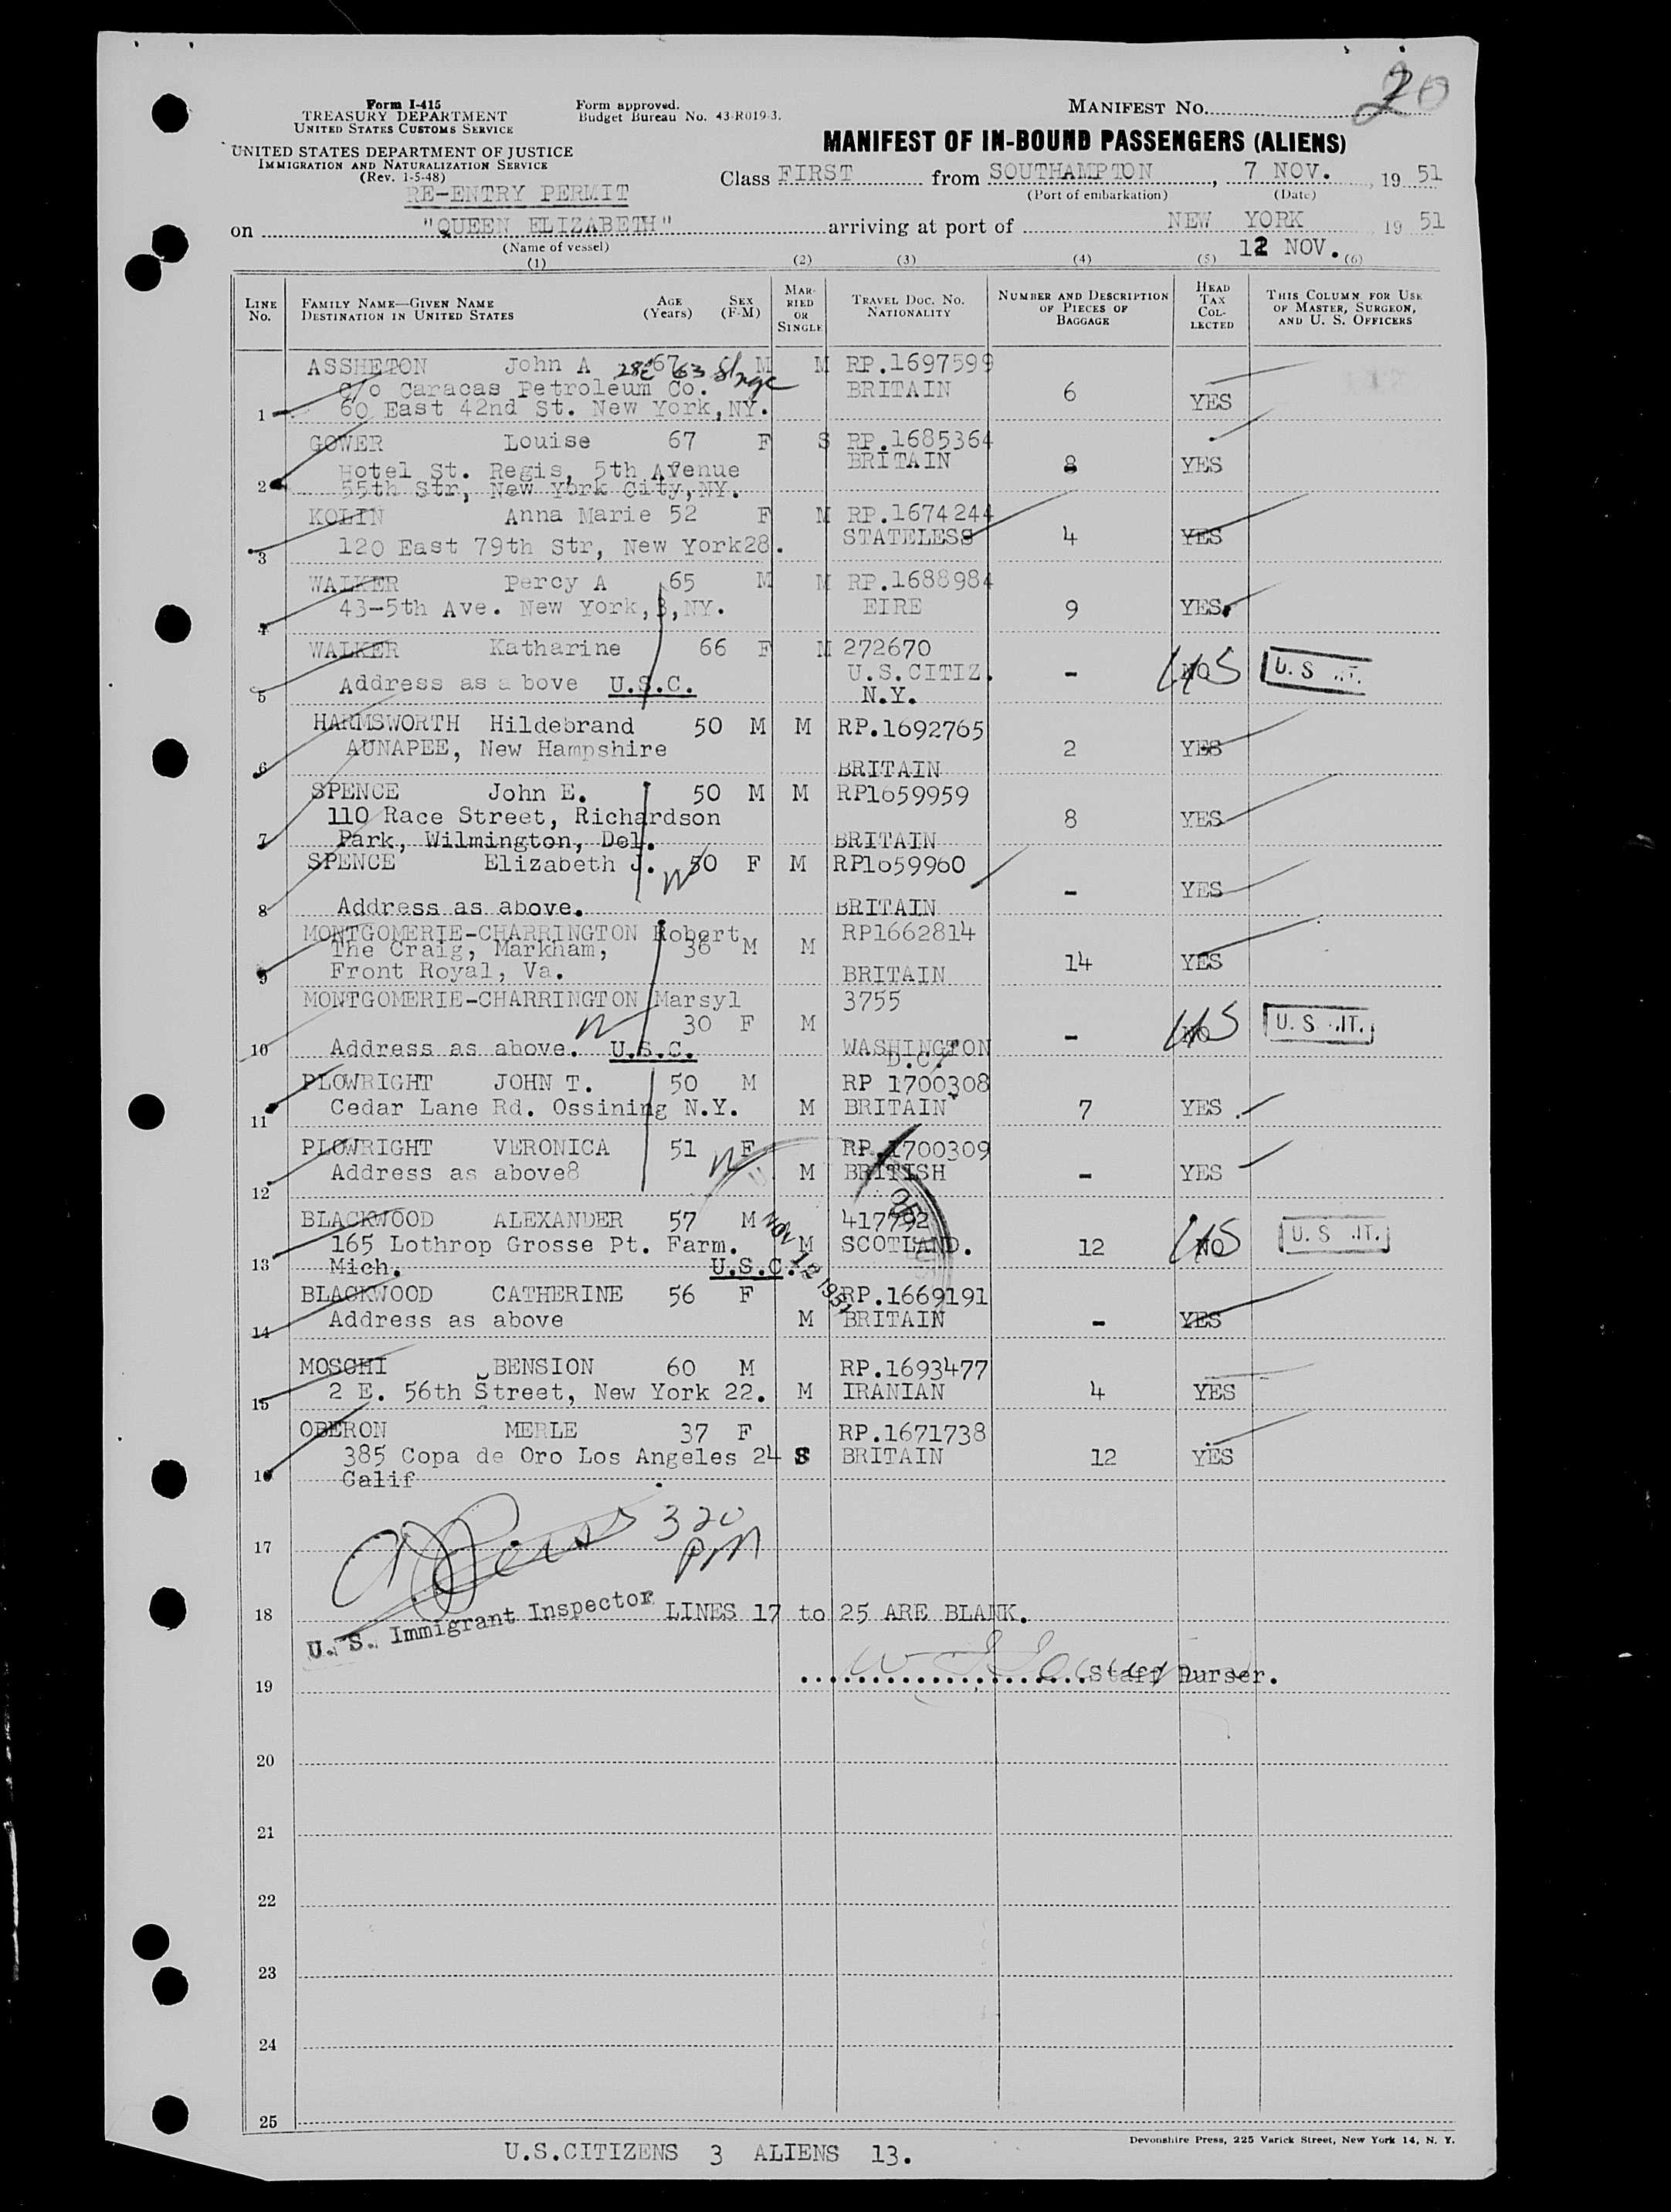 20
Form I-415
TREASURY DEPARTMENT
UNITED STATES CUSTOMS SERVICE
Form approved.
Budget Bureau No. 43-R019-3.
MANIFEST No.
UNITED STATES DEPARTMENT OF JUSTICE
IMMIGRATION AND NATURALIZATION SERVICE
(Rev. 1-5-48)
MANIFEST OF IN-BOUND PASSENGERS (ALIENS)
RE-ENTRY PERMIT
Class FIRST from SOUTHAMPTON, 7 NOV., 19 51
(Port of embarkation) (Date)
on "QUEEN ELIZABETH" arriving at port of NEW YORK 19 51
(Name of vessel) 12 NOV.
(1) (2) (3) (4) (5) (6)
LINE No. FAMILY NAME—GIVEN NAME DESTINATION IN UNITED STATES AGE (Years) SEX (F-M) MARRIED OR SINGLE TRAVEL DOC. No. NATIONALITY NUMBER AND DESCRIPTION OF PIECES OF BAGGAGE HEAD TAX COLLECTED THIS COLUMN FOR USE OF MASTER, SURGEON, AND U. S. OFFICERS
ASSHETON John A 67 M M RP.1697599
c/o Caracas Petroleum Co. BRITAIN 6 YES
1 60 East 42nd St. New York,NY.
GOWER Louise 67 F S RP.1685364
Hotel St. Regis, 5th Avenue BRITAIN 8 YES
2 55th Str, New York City,NY.
KOLIN Anna Marie 52 F M RP.1674244
3 120 East 79th Str, New York28. STATELESS 4 YES
WALKER Percy A 65 M M RP.1688984
4 43-5th Ave. New York,3,NY. EIRE 9 YES
WALKER Katharine 66 F M 272670
5 Address as a bove U.S.C. U.S.CITIZ. - NO US U. S .IT.
N.Y.
HARMSWORTH Hildebrand 50 M M RP.1692765
AUNAPEE, New Hampshire 2 YES
6 BRITAIN
SPENCE John E. 50 M M RP1659959
110 Race Street, Richardson 8 YES
7 Park, Wilmington, Del. BRITAIN
SPENCE Elizabeth J. 50 F M RP1659960
- YES
8 Address as above. BRITAIN
MONTGOMERIE-CHARRINGTON Robert RP1662814
The Craig, Markham, 36 M M
9 Front Royal, Va. BRITAIN 14 YES
MONTGOMERIE-CHARRINGTON Marsyl 3755
30 F M - NO US U. S .IT.
10 Address as above. U.S.C. WASHINGTON
D.C.
PLOWRIGHT JOHN T. 50 M RP 1700308
11 Cedar Lane Rd. Ossining N.Y. M BRITAIN 7 YES
PLOWRIGHT VERONICA 51 F RP.1700309
12 Address as above8 M BRITISH - YES
NOV 12 1951
BLACKWOOD ALEXANDER 57 M 417792
165 Lothrop Grosse Pt. Farm. M SCOTLAND. 12 NO US U. S .IT.
13 Mich. U.S.C.
BLACKWOOD CATHERINE 56 F RP.1669191
14 Address as above M BRITAIN - YES
MOSCHI BENSION 60 M RP.1693477
15 2 E. 56th Street, New York 22. M IRANIAN 4 YES
OBERON MERLE 37 F RP.1671738
385 Copa de Oro Los Angeles 24 S BRITAIN 12 YES
16 Calif
320
PM
17
U. S. Immigrant Inspector
18 LINES 17 to 25 ARE BLANK.
19 Staff Purser.
20
21
22
23
24
25
Devonshire Press, 225 Varick Street, New York 14, N. Y.
U.S.CITIZENS 3 ALIENS 13.